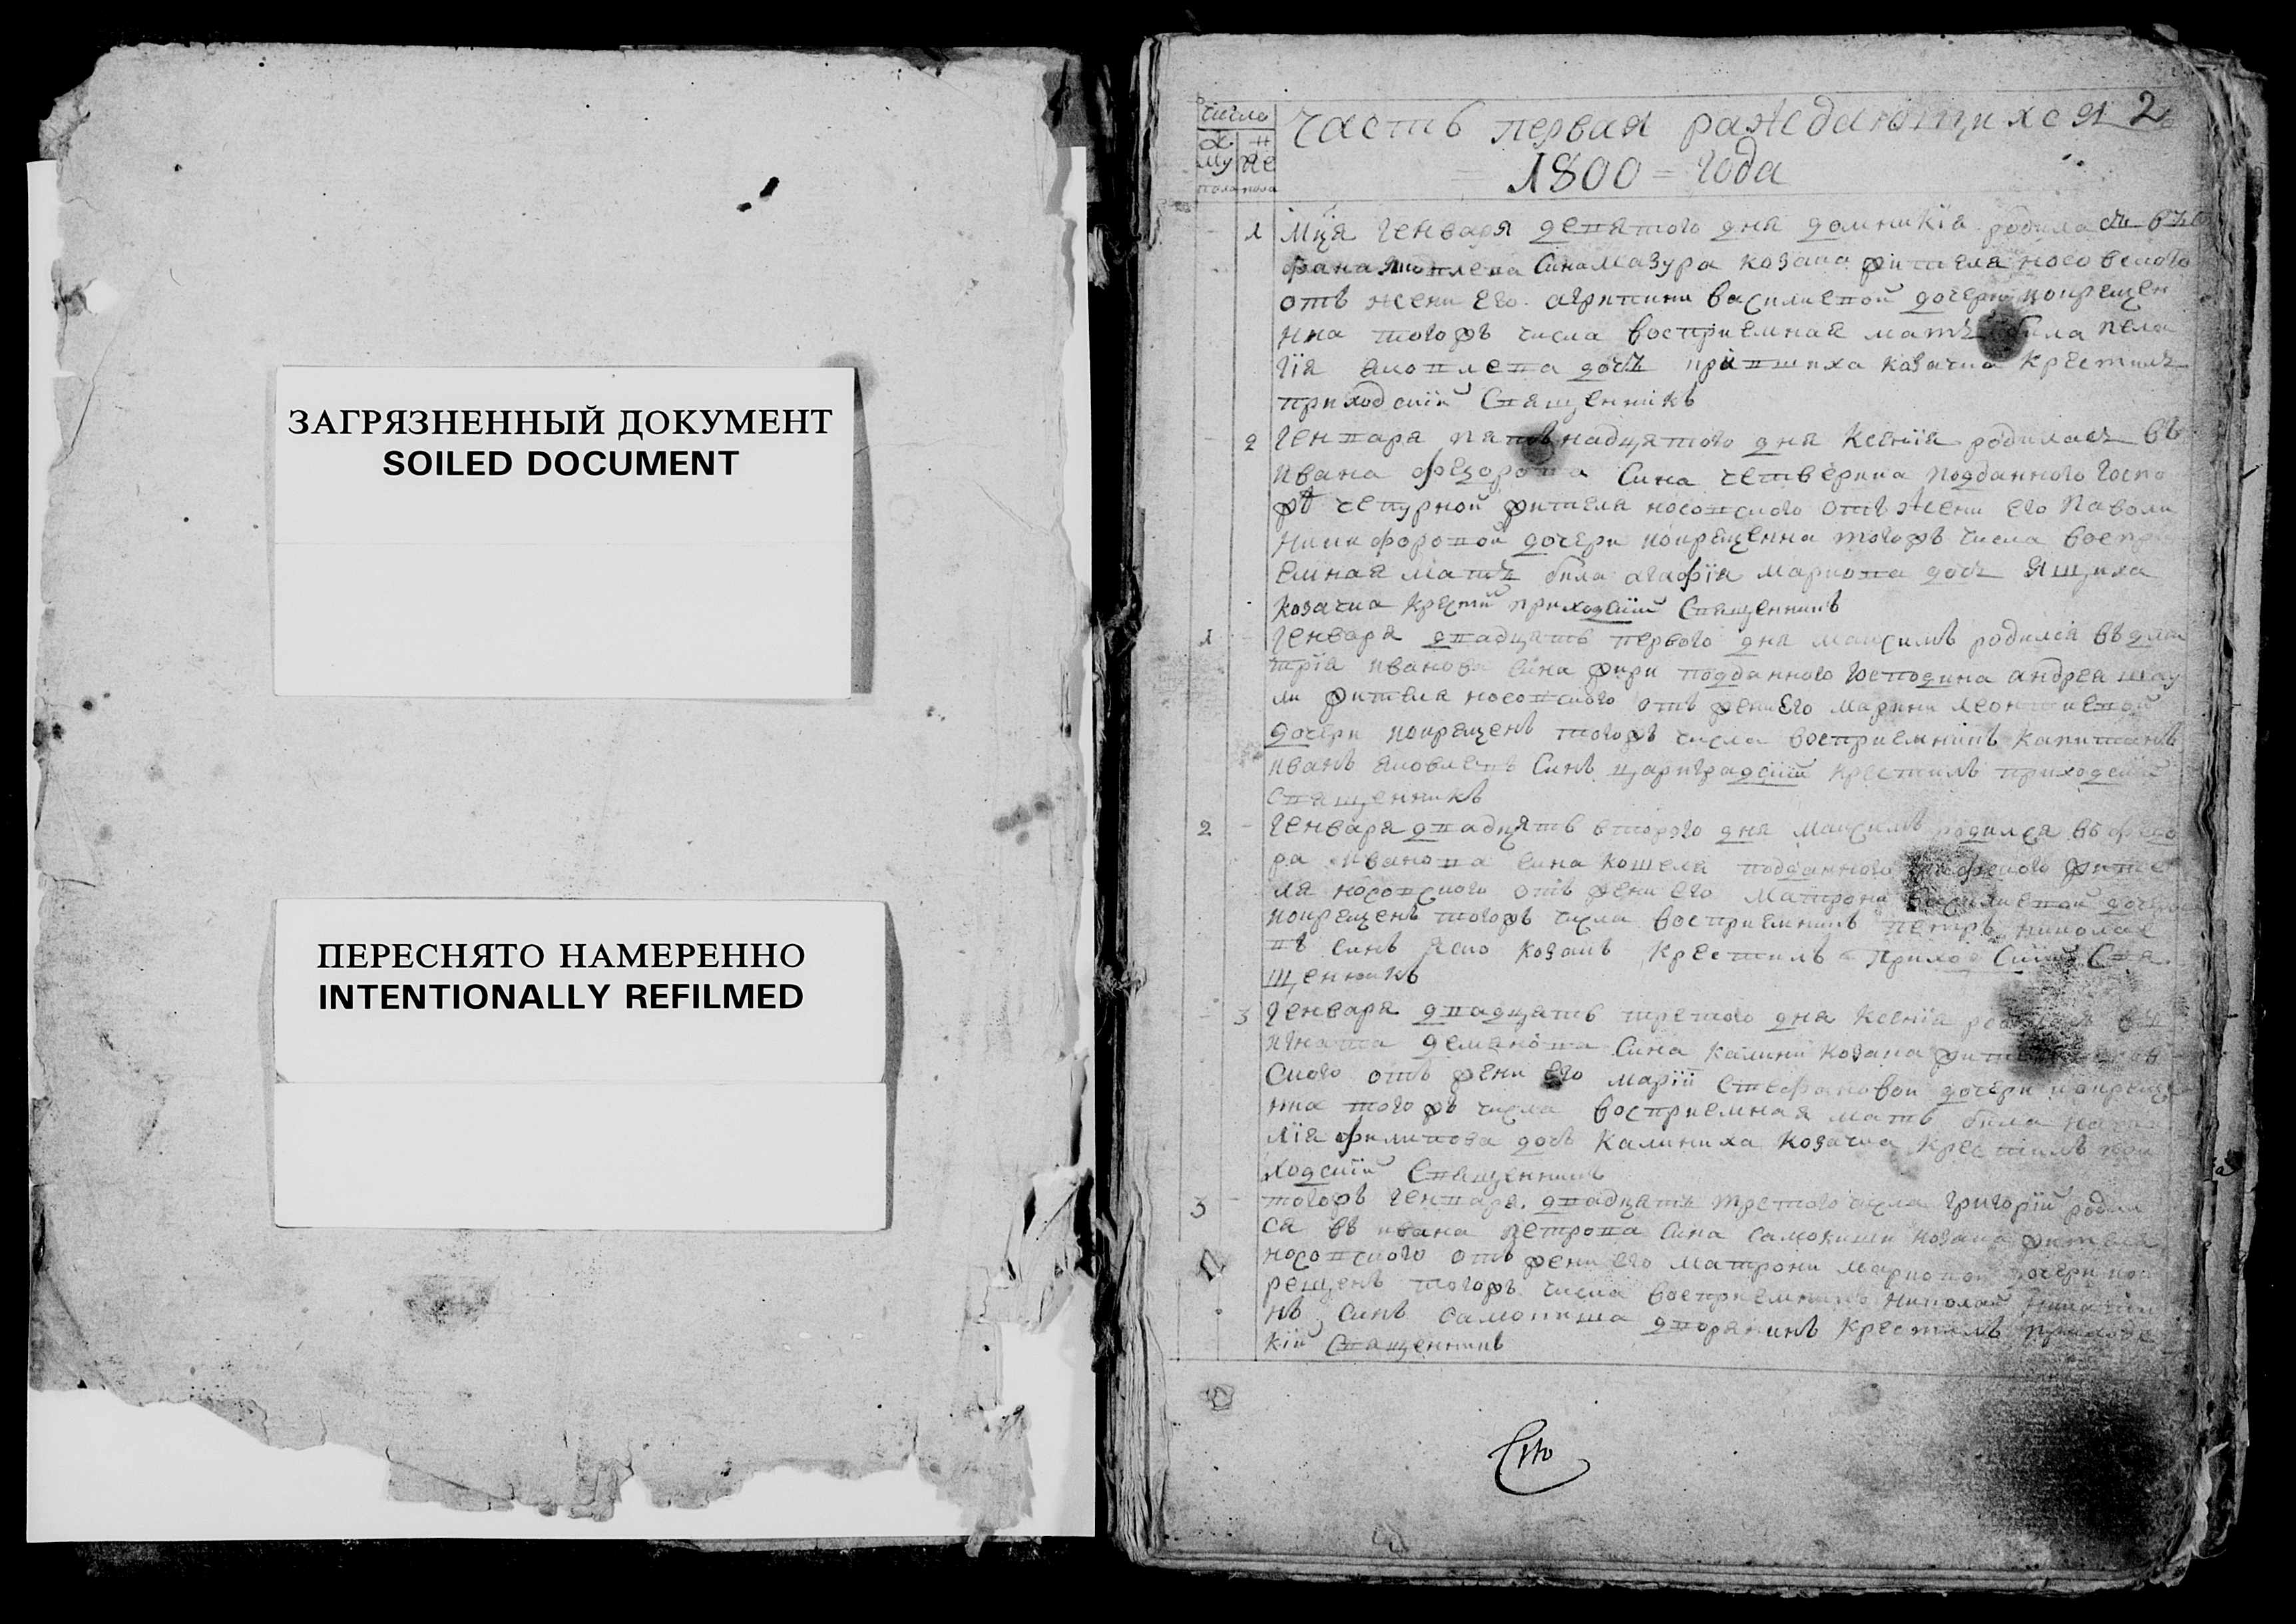 ЗАГРЯЗНЕННЫЙ ДОКУМЕНТ
SOILED DOCUMENT
ПЕРЕСНЯТО НАМЕРЕННО
INTENTIONALLY REFILMED
число
му же
пола пола
Часть первая раждающихся 2
1800 = года
1 Мця Генваря девятого дня домникіа родила
сина Мазура козака жителя носовского
отъ жени его агрипини василиевой дочери покрещен
нна тогожъ числа восприемная мать била пела
гія яковлева дочь козачка крестилъ
приходскій Священникъ
2 Генваря пятьнадцятого дня Ксенія родилась въ
ивана федорова Сина четверика подданного госпо
жѣ жителя носовского отъ жени его Паволи
никифоровой дочери покрещенна тогожъ числа воспри
емная мать била агафія маркова дочь Ящиха
козачка крести приходскій Священникъ
1 Генваря двадцять первого дня максимъ родился въ дми
трія иванова Сина подданного господина андрея
жителя носовского отъ жени Его марини леонтиевой
дочери покрещенъ тогожъ числа восприемникъ капитанъ
иванъ яковлевъ Синъ цариградскій крестилъ приходскій
Священникъ
2 Генваря двадцять второго дня максимъ родился въ федо
ра иванова Сина кошеля подданного жите
ля носовского отъ жени его матрони василиевой дочери
покрещенъ тогожъ числа восприемникъ петръ николае
въ синъ козакъ крестилъ приходскій Свя
щенникъ
3 Генваря двадцять третого дня Ксенія въ
игната демянова Сина калини козака
ского отъ жени его маріи Стефановой дочери покреще
нна тогожъ числа восприемная мать била ната
лія филипова дочь Калиниха козачка крестилъ при
ходскій Священникъ
3 тогожъ Генваря двадцять третого числа григорій роди
ся въ ивана петрова Сина самокиши козака жителя
носовского отъ жени его матрони марковой дочери пок
рещенъ тогожъ числа восприемникъ николай
нъ синъ самокиша дворянинъ крестилъ приходс
кій Священникъ